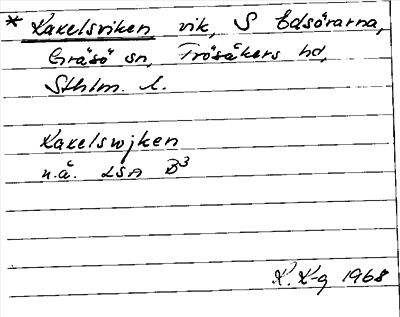 * Kakelsviken vik, S Edsörarna,
Gräsö sn, Frösåkers hd,
Sthlm. l.
Kakelswjken
n.å. LSA B3
K. K-g 1968